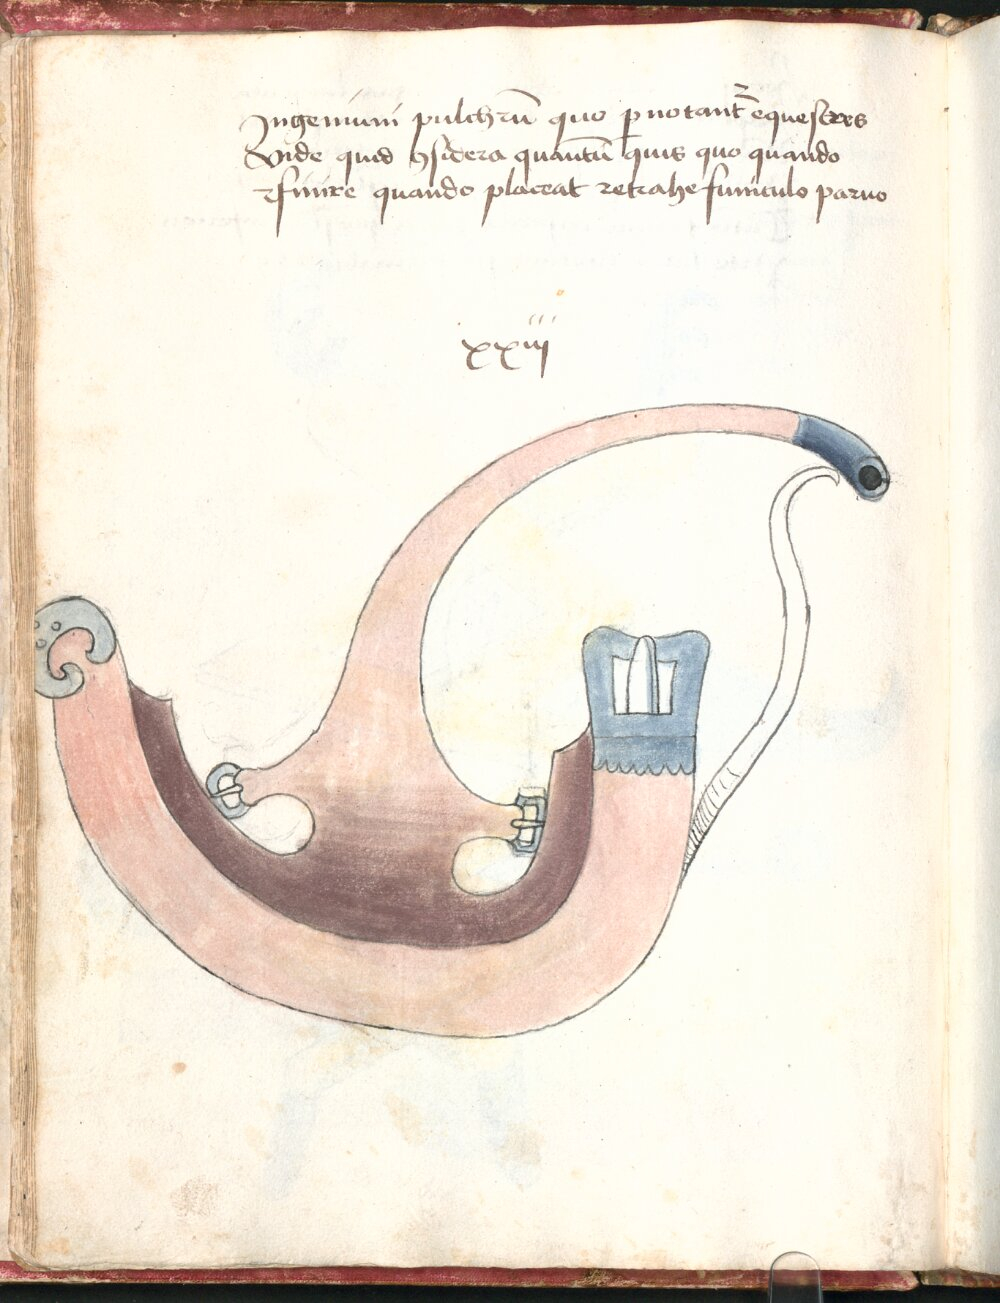 Ingenium pulchrū quo pnotant᷑ equestres
Vide quid ꝯsidera quantū quis quo quando
 quando placeat retrahe funiculo paruo
xxiij